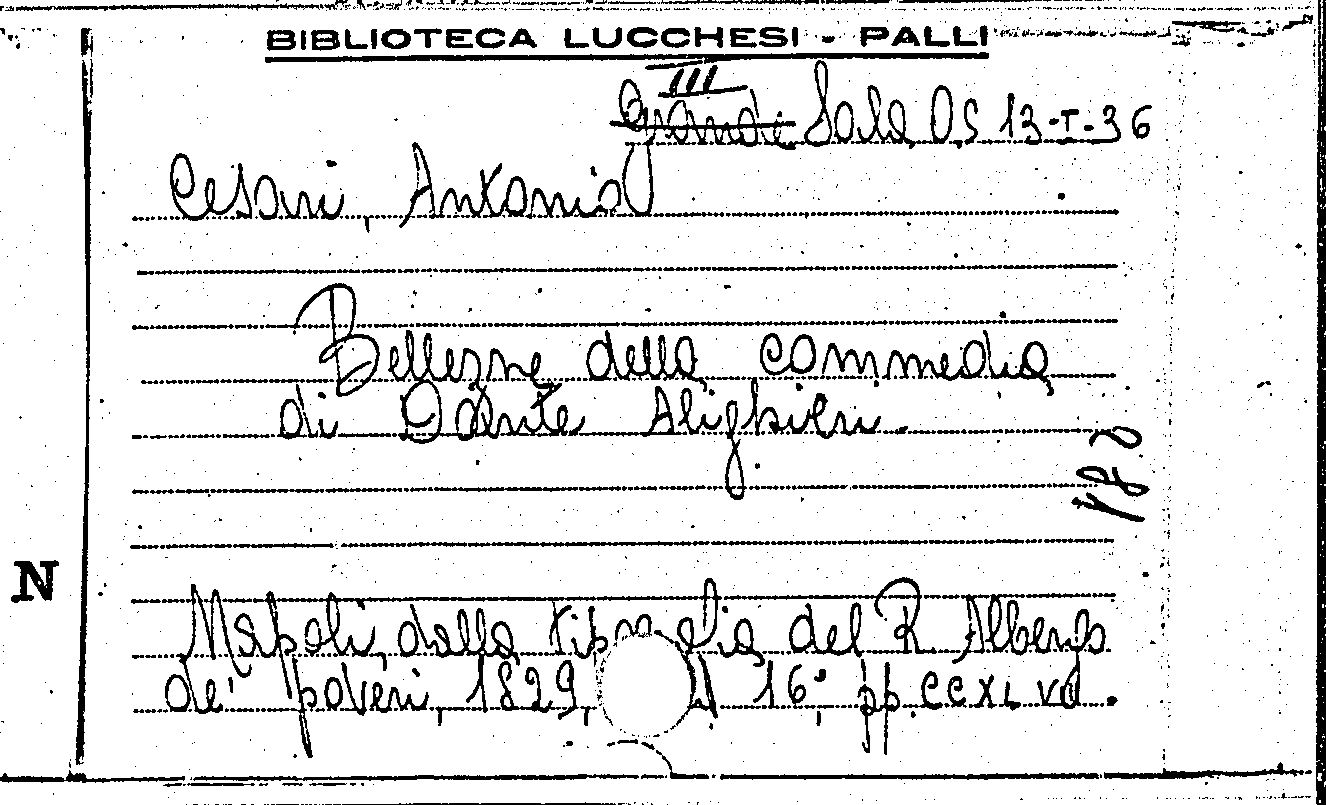 BIBLIOTECA LUCCHESI - PALLI
III
Grande Sala OS 13-I-36
Cesari, Antonio
Bellezze della commedia
di Dante Alighieri.
188
N
Napoli, dalla tipografia del R. Albergo
de' poveri, 1829, 16°, pp. CCXL